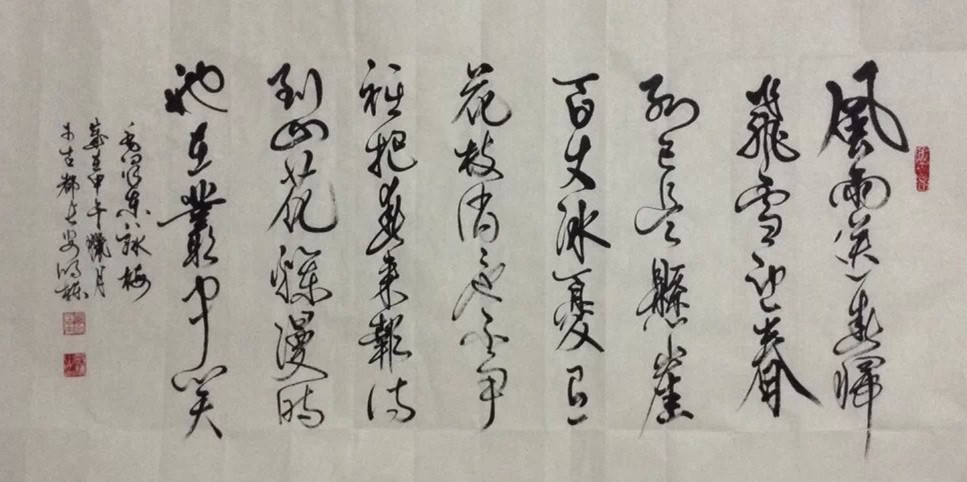 風雨送春歸
飛雪迎春
到已是懸崖
百丈冰
花枝俏也不爭
祇把春来報待
到山花爛漫時
她在叢中笑
毛澤東詠梅
歲在甲午臘月
于古都長安